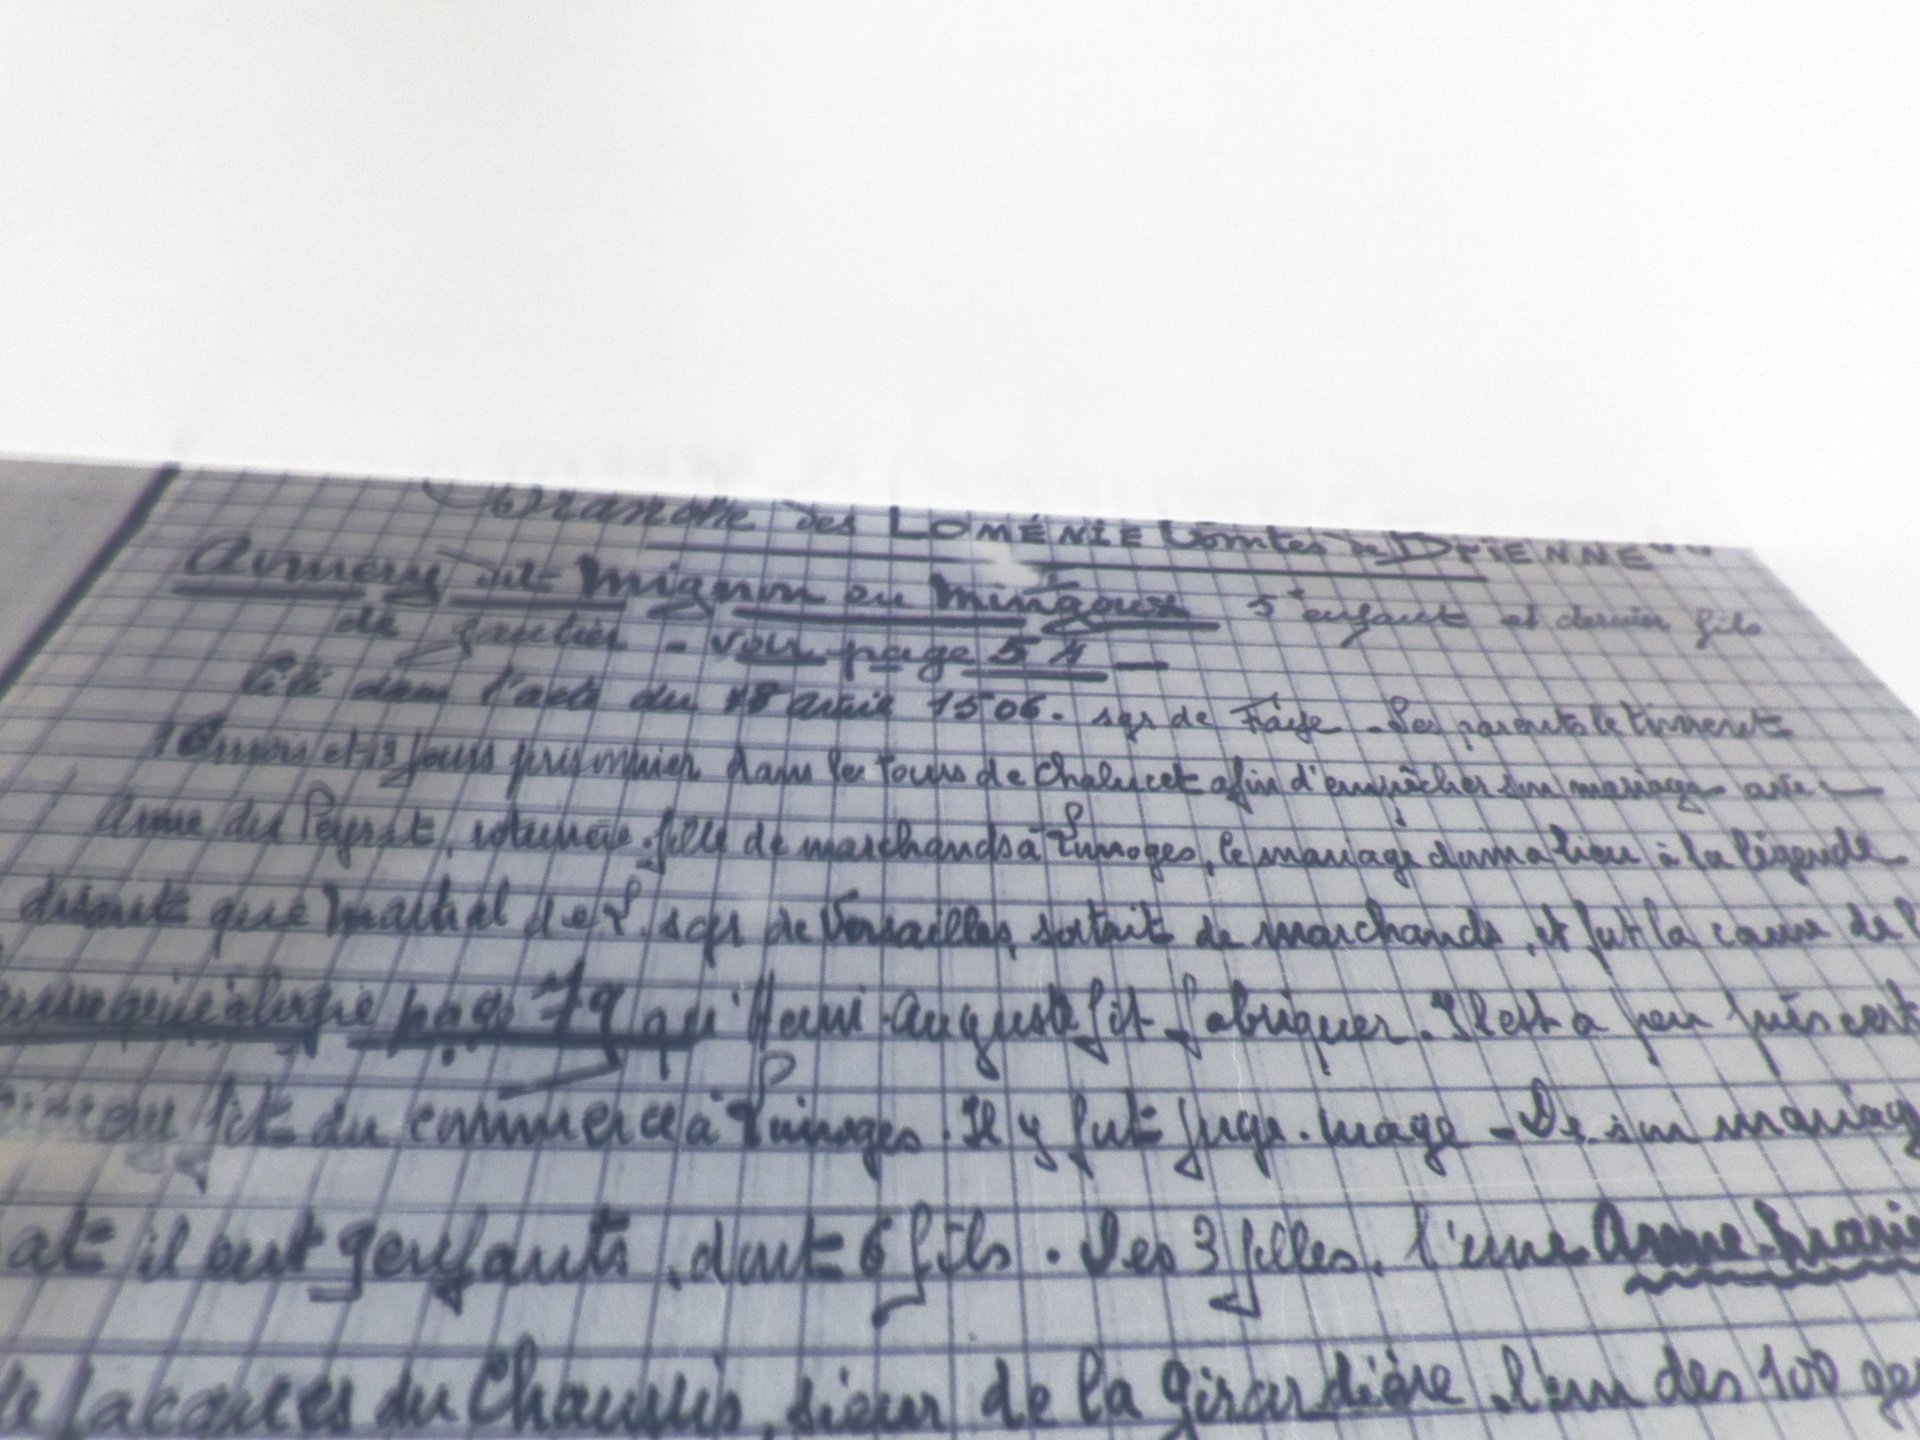 Branche des LOMÉNIE Comtes de BRIENNE""
Aimery dit Mignon ou Mingoux 5e enfant et dernier fils
de Gautier - voir page 54 -
Cité dans l'acte du 18 avril 1506. sgr de Faye - Ses parents le tinrent
16 mois et 13 jours prisonnier dans les tours de Chalucet afin d'empêcher son mariage avec
Anne du Peyrat, roturière, fille de marchands à Limoges, le mariage donna lieu à la légende
disant que Martial de L. sgr de Versailles, sortait de marchands, et fut la cause de l
généalogie page 79 qu'Henri-Auguste fit fabriquer. Il est a peu près cert
fit du commerce à Limoges. Il y fut juge-mage - De son mariag
at il eut 9 enfants, dont 6 fils. Des 3 filles, l'une Anne-Marie
de Jacques du Chaussis, sieur de la Girardière, l'un des 100 ge